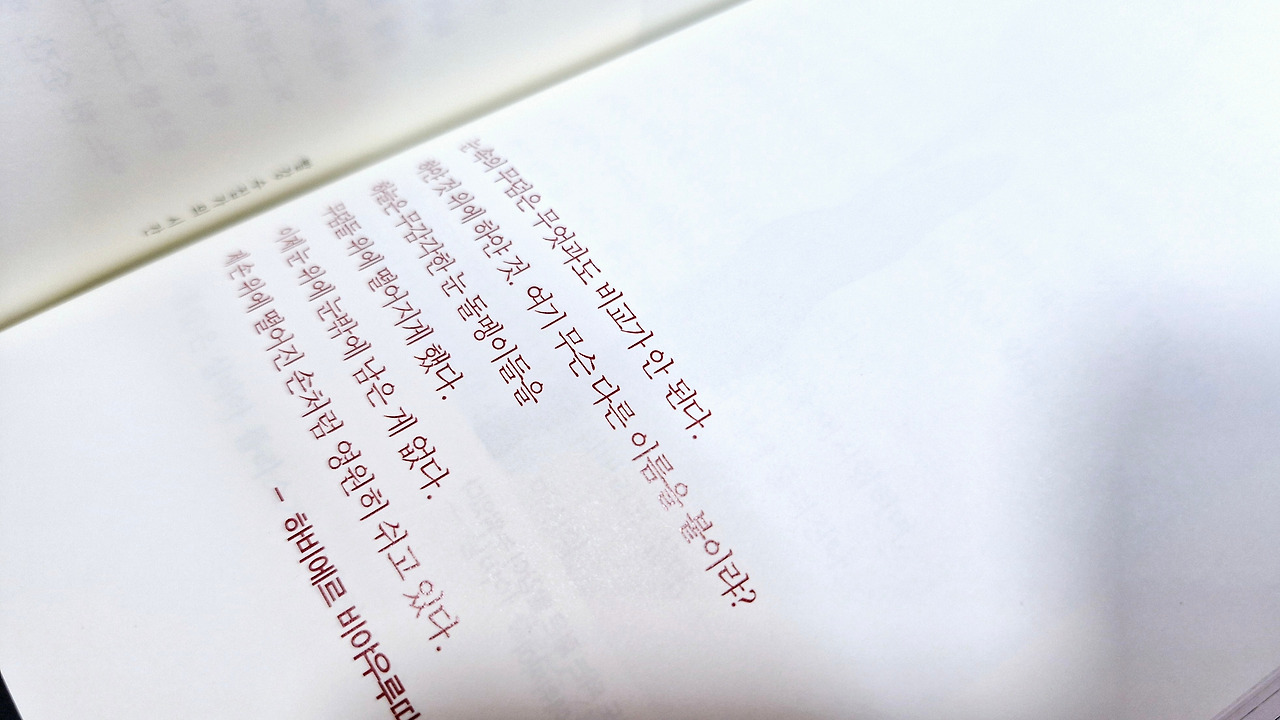 눈 속의 무덤은 무엇과도 비교가 안 된다.
하얀 것 위에 하얀 것. 여기 무슨 다른 이름을 붙이랴?
하늘은 무감각한 눈 돌멩이들을
무덤들 위에 떨어지게 했다.
이제 눈 위에 눈밖에 남은 게 없다.
제 손 위에 떨어진 손처럼 영원히 쉬고 있다.
- 하비에르 비야우루띠